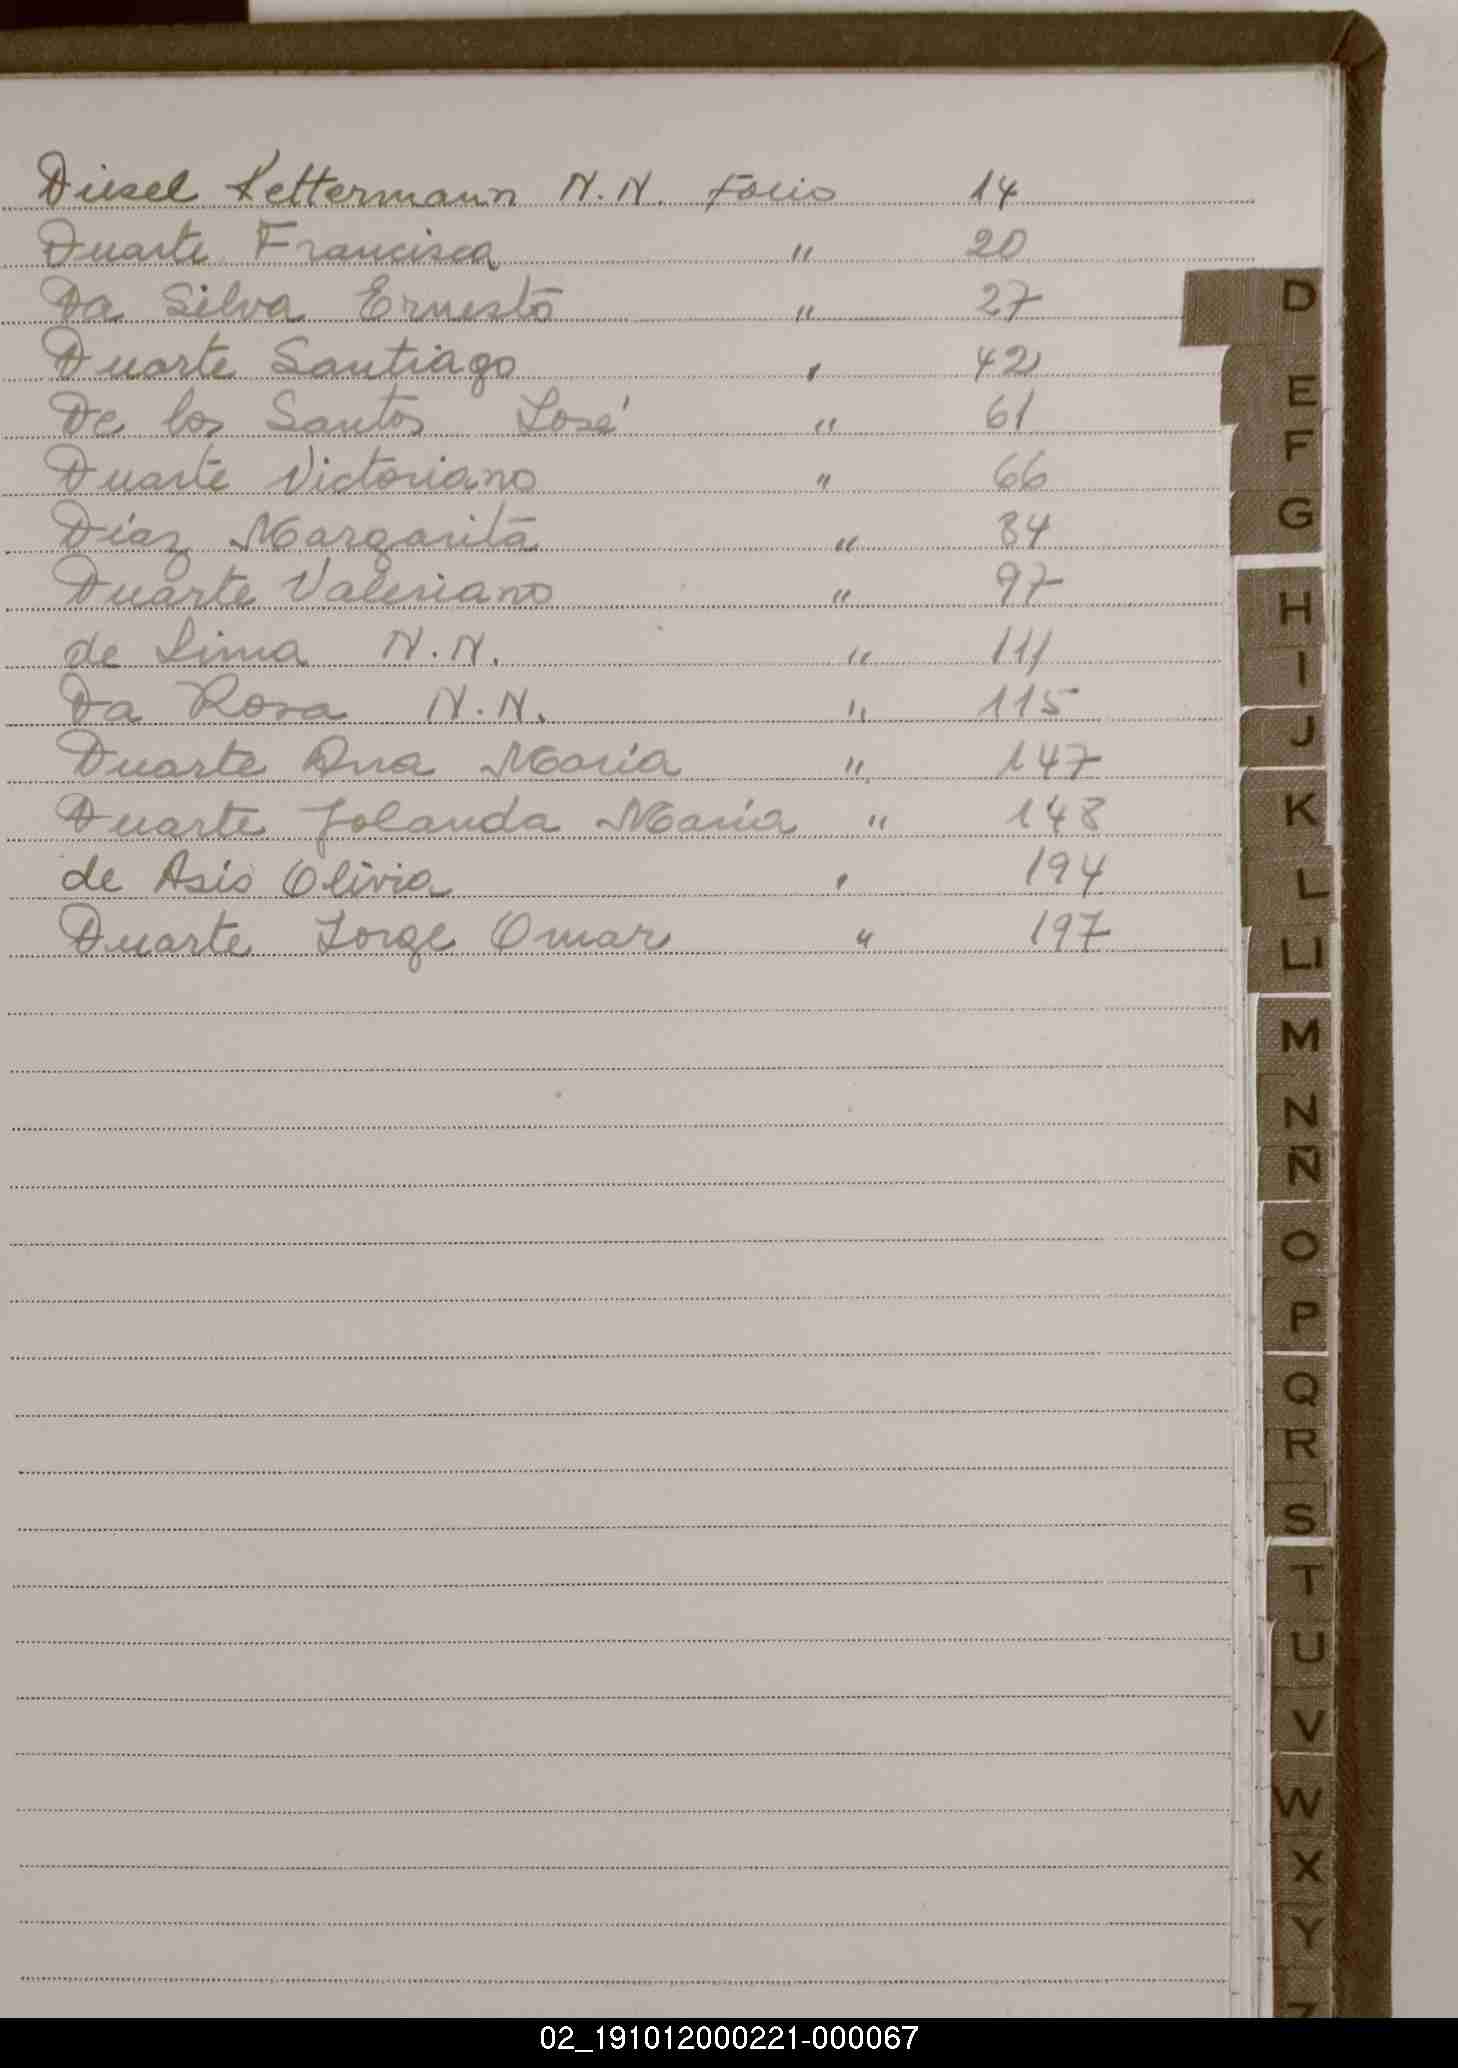 Diesel Kettermann N.N. Folio 14
Duarte Francisca " 20
Da Silva Ernesto " 27
Duarte Santiago " 42
De los Santos José " 61
Duarte Victoriano " 66
Díaz Margarita " 84
Duarte Valeriano " 97
de Lima N.N. " 111
Da Rosa N.N. " 115
Duarte Ana María " 147
Duarte Jolanda María " 148
de Asis Olivia " 194
Duarte Jorge Omar " 197
D
E
F
G
H
I
J
K
L
Ll
M
N
Ñ
O
P
Q
R
S
T
U
V
W
X
Y
Z
02_191012000221-000067